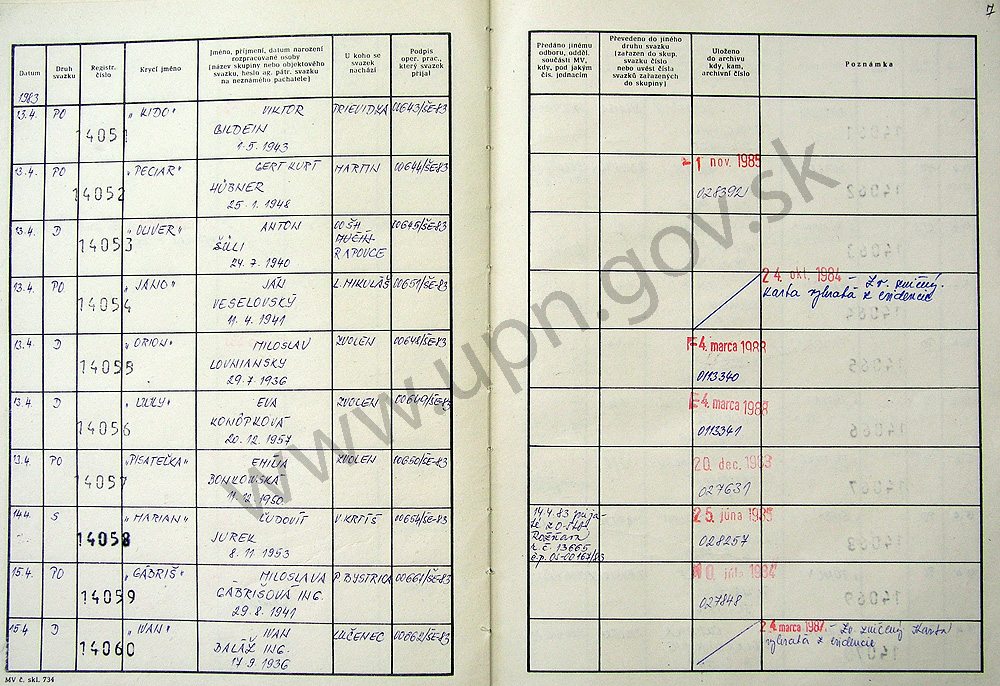 7
Datum
Druh svazku
Registr. číslo
Krycí jméno
Jméno, příjmení, datum narození rozpracované osoby (název skupiny nebo objektového svazku, heslo ag. pátr. svazku na neznámého pachatele)
U koho se svazek nachází
Podpis oper. prac., který svazek přijal
Předáno jinému odboru, odděl. součásti MV, kdy, pod jakým čís. jednacím
Převedeno do jiného druhu svazku (zařazen do skup. svazku číslo nebo uvést čísla svazků zařazených do skupiny)
Uloženo do archivu kdy, kam, archivní číslo
Poznámka
1983
13.4. PO 14051 "KIDO" VIKTOR PRIEVIDZA 00643/ŠE-83
BILDEIN
1.5.1943
13.4. PO 14052 "PECIAR" GERT KURT MARTIN 00644/ŠE-83 1 nov. 1985
HÜBNER 028392
25.1.1948
13.4. D 14053 "OLIVER" ANTON OO ŠtB 00645/ŠE-83
ŠÜLI MUČÍN-
24.7.1940 RAPOVCE
13.4. PO 14054 "JÁNO" JÁN L. MIKULÁŠ 00651/ŠE-83 24. okt. 1984 - Zv. zničený.
VESELOVSKÝ Karta vybratá z evidencie
11.4.1941
13.4. D 14055 "ORION" MILOSLAV ZVOLEN 00648/ŠE-83 4. marca 1988
LOVNIANSKY 0113340
29.7.1936
13.4. D 14056 EVA ZVOLEN 00649/ŠE-83 4. marca 1988
KONÔPKOVÁ 0113341
20.12.1957
13.4. PO 14057 "PISATEĽKA" EMÍLIA ZVOLEN 00650/ŠE-83 20. dec. 1983
BONKOWSKÁ 027631
11.12.1950
14.4. S 14058 "MARIAN" ĽUDOVÍT V. KRTÍŠ 00654/ŠE-83 14.4.83 prija- 25. júna 1985
JUREK 028257
8.11.1953 Rožňava
r.č. 13665
15.4. PO 14059 "GÁBRIŠ" MILOSLAVA P. BYSTRICA 00661/ŠE-83 0. júla 1984
GÁBRIŠOVÁ ING. 027848
29.8.1941
15.4 D 14060 "IVAN" IVAN LUČENEC 00662/ŠE-83 24. marca 1987. - Zv. zničený Karta
BALÁŽ ING. vybratá z evidencie
17.9.1936
MV č. skl. 734
www.upn.gov.sk